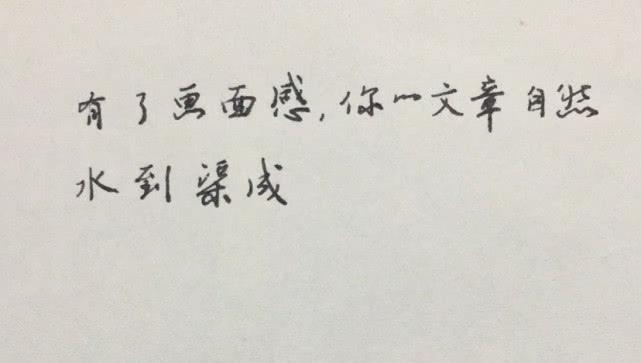 有了画面感，你的文章自然
水到渠成